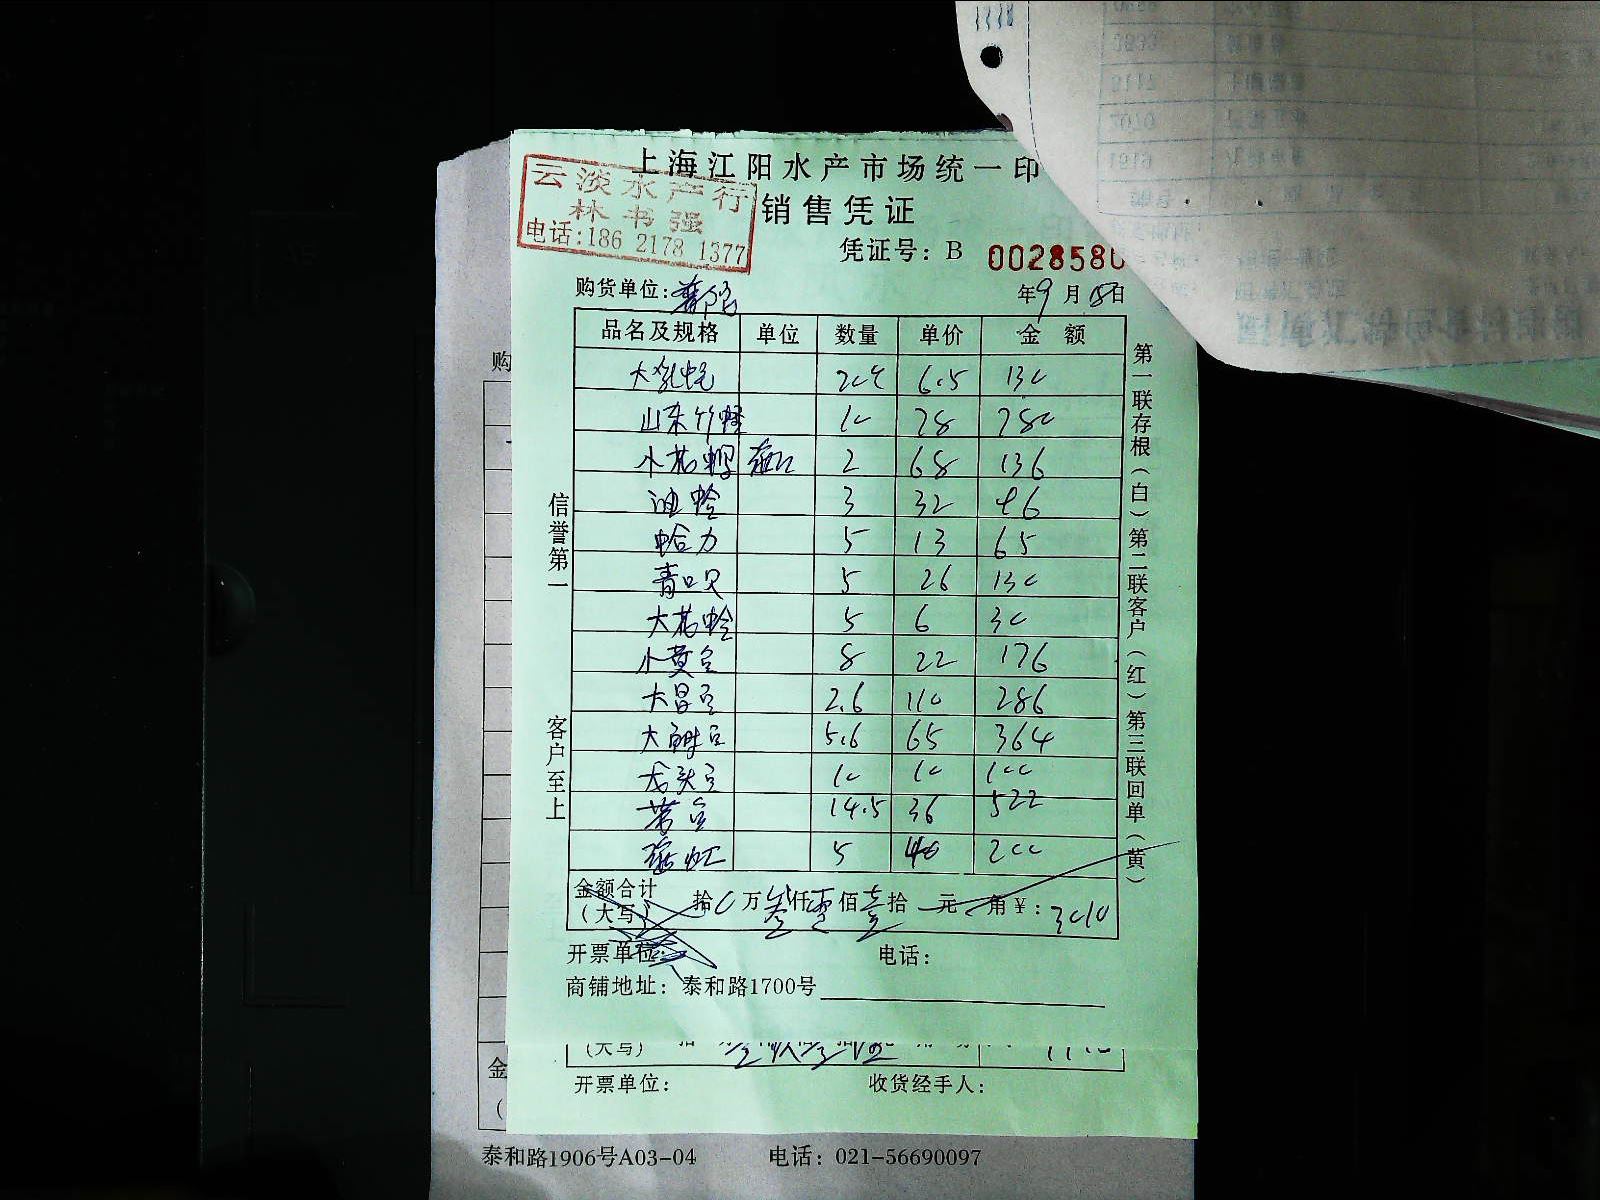 上海江阳水产市场统一印
云淡水产行
林书强
电话:186 2178 1377
销售凭证
凭证号: B 0028580
购货单位:
年9月18日
品名及规格 单位 数量 单价 金额
大 20斤 6.5 130
山东竹蛏 10 28 280
小花螺 2 68 136
油蛤 3 32 96
蛤力 5 13 65
青口贝 5 26 130
大花蛤 5 6 30
小黄豆 8 22 176
大昌豆 2.6 110 286
大 豆 5.6 65 364
龙头豆 10 10 100
带豆 14.5 36 522
5 40 200
金额合计
(大写) 拾 万叁仟零佰壹拾 元 角￥: 3010
开票单位:
电话:
商铺地址: 泰和路1700号
信誉第一
客户至上
第一联存根(白)第二联客户(红)第三联回单(黄)
购
(大写)
金
(
开票单位:
收货经手人:
泰和路1906号A03-04 电话: 021-56690097